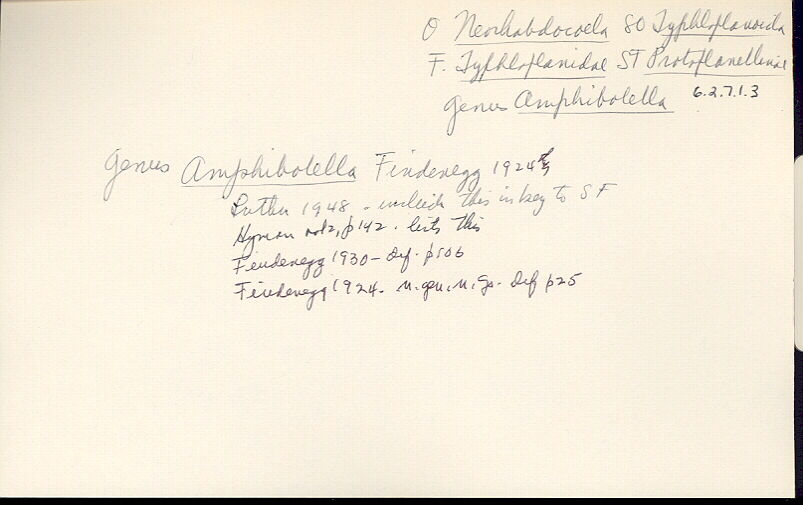 O Neorhabdocoela SO Typhloplanoida
F. Typhloplanidae ST Protoplanellinae
genus Amphibolella 6.2.7.1.3
Genus Amphibolella Findenegg 1924
Luther 1948 - include this in key to SF
Hyman vol 2, p 142 - lists this
Findenegg 1930 - Def. p 506
Findenegg 1924. n. gen. n. sp. Def p 25